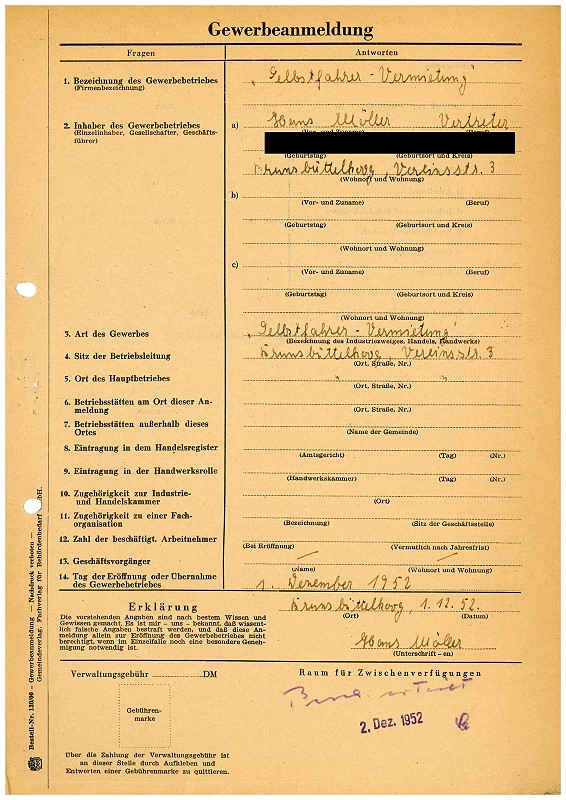 Gewerbeanmeldung
Fragen Antworten
1. Bezeichnung des Gewerbebetriebes „Selbstfahrer - Vermietung"
(Firmenbezeichnung)
2. Inhaber des Gewerbebetriebes a) Hans Möller Vertreter
(Einzelinhaber, Gesellschafter, Geschäfts- (Vor- und Zuname) (Beruf)
führer)
(Geburtstag) (Geburtsort und Kreis)
Brunsbüttelkoog, Vereinsstr. 3
(Wohnort und Wohnung)
b)
(Vor- und Zuname) (Beruf)
(Geburtstag) (Geburtsort und Kreis)
(Wohnort und Wohnung)
c)
(Vor- und Zuname) (Beruf)
(Geburtstag) (Geburtsort und Kreis)
(Wohnort und Wohnung)
3. Art des Gewerbes „Selbstfahrer - Vermietung"
(Bezeichnung des Industriezweiges, Handels, Handwerks)
4. Sitz der Betriebsleitung Brunsbüttelkoog, Vereinsstr. 3
(Ort, Straße, Nr.)
5. Ort des Hauptbetriebes " "
(Ort, Straße, Nr.)
6. Betriebsstätten am Ort dieser An-
meldung (Ort, Straße, Nr.)
7. Betriebsstätten außerhalb dieses
Ortes (Name der Gemeinde)
8. Eintragung in dem Handelsregister
(Amtsgericht) (Tag) (Nr.)
9. Eintragung in der Handwerksrolle
(Handwerkskammer) (Tag) (Nr.)
10. Zugehörigkeit zur Industrie-
und Handelskammer (Ort)
11. Zugehörigkeit zu einer Fach-
organisation (Bezeichnung) (Sitz der Geschäftsstelle)
12. Zahl der beschäftigt. Arbeitnehmer
(Bei Eröffnung) (Vermutlich nach Jahresfrist)
13. Geschäftsvorgänger
(Name) (Wohnort und Wohnung)
14. Tag der Eröffnung oder Übernahme
des Gewerbebetriebes 1. Dezember 1952
Erklärung Brunsbüttelkoog, 1.12.52.
(Ort) (Datum)
Die vorstehenden Angaben sind nach bestem Wissen und
Gewissen gemacht. Es ist mir – uns – bekannt, daß wissent-
lich falsche Angaben bestraft werden, und daß diese An-
meldung allein zur Eröffnung des Gewerbebetriebes nicht
berechtigt, wenn im Einzelfalle noch eine besondere Geneh-
migung notwendig ist.
Hans Möller
(Unterschrift - en)
Verwaltungsgebühr DM Raum für Zwischenverfügungen
Gebühren-
marke
2. Dez. 1952
Über die Zahlung der Verwaltungsgebühr ist
an dieser Stelle durch Aufkleben und
Entwerten einer Gebührenmarke zu quittieren.
Bestell-Nr. 130/00 – Gewerbeanmeldung – Nachdruck verboten –
Gemeindeverlag, Fachverlag für Behördenbedarf